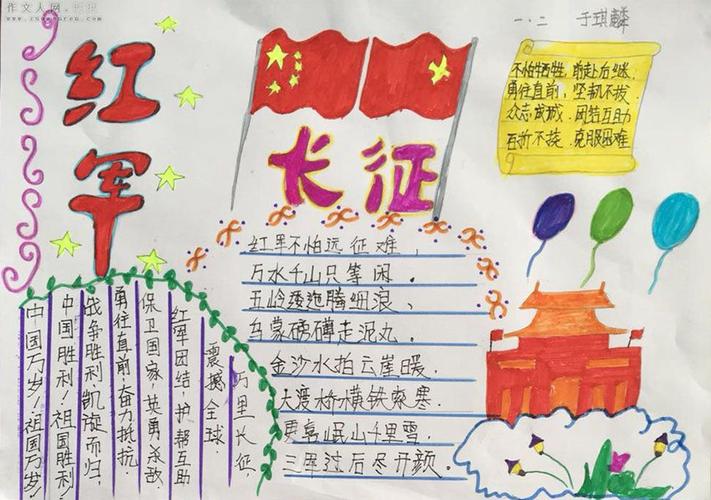 作文人网
www.zuowenren.com
一．二 于琪麟
红军
长征
不怕牺牲，前赴后继，
勇往直前，坚韧不拔，
众志成城，团结互助
百折不挠，克服困难
红军不怕远征难，
万水千山只等闲。
五岭逶迤腾细浪、
乌蒙磅礴走泥丸。
金沙水拍云崖暖，
大渡桥横铁索寒．
更喜岷山千里雪，
三军过后尽开颜．
万里长征，
震撼全球．
红军团结，护帮互助
保卫国家，英勇杀敌．
勇往直前，奋力抵抗
战争胜利，凯旋而归，
中国胜利！祖国胜利！
中国万岁！祖国万岁！